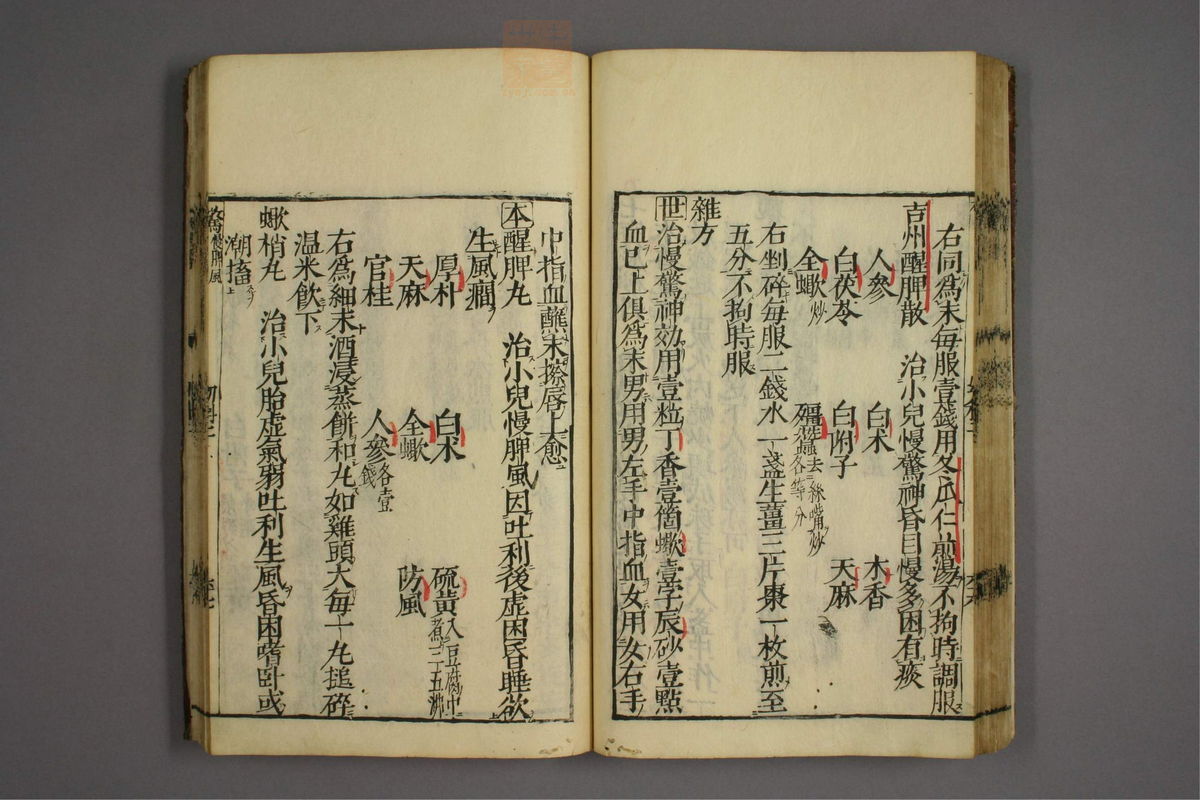 右同爲末每服壹錢用冬瓜仁煎湯不拘時調服
吉州醒脾散　治小兒慢驚神昏目慢多困有痰
人參　白朮　木香
白茯苓　白附子　天麻
全蠍炒　殭蠶去絲嘴炒各等分
右剉碎每服二錢水一盞生薑三片棗一枚煎至
五分不拘時服
雜方
世治慢驚神効用壹粒丁香壹箇蠍壹字辰砂壹點
血已上俱爲末男用男左手中指血女用女右手
中指血蘸末擦唇上愈
本醒脾丸　治小兒慢脾風因吐利後虛困昏睡欲
生風癇
厚朴　白朮　硫黃入豆腐中煮三五沸
天麻　全蠍　防風
官桂　人參各壹錢
右爲細末酒浸蒸餅和丸如雞頭大每一丸搥碎
溫米飮下
蠍梢丸　治小兒胎虛氣弱吐利生風昏困嗜卧或
潮搐